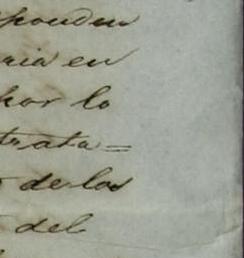 sponden
ria en
por lo
trata=
de los
del